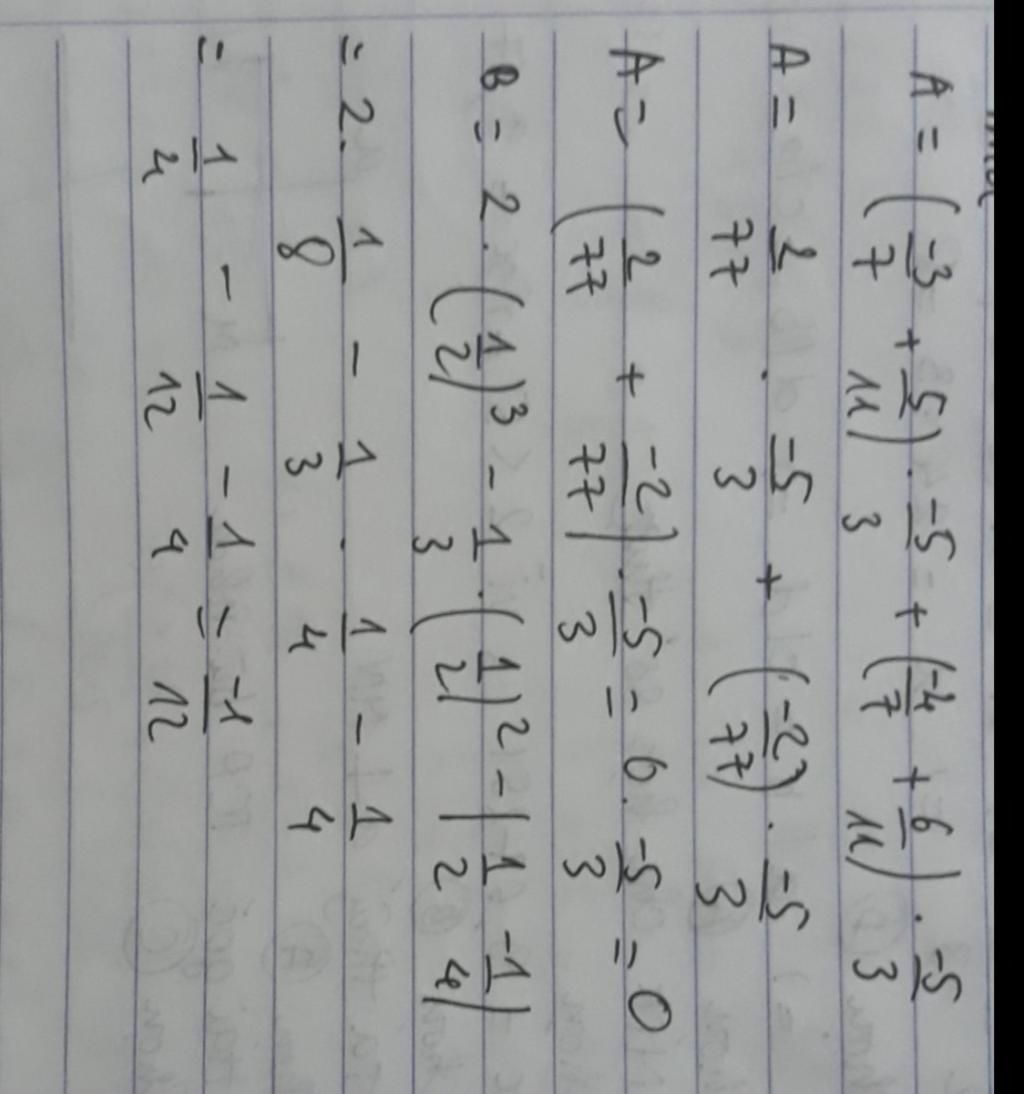 A = (-3/7 + 5/11) . -5/3 + (-4/7 + 6/11) . -5/3
A = 2/77 . -5/3 + (-2/77) . -5/3
A = (2/77 + -2/77) . -5/3 = 0. -5/3 = 0
B = 2. (1/2)³ - 1/3 . (1/2)² - |1/2 - 1/4|
= 2. 1/8 - 1/3 . 1/4 - 1/4
= 1/4 - 1/12 - 1/4 = -1/12